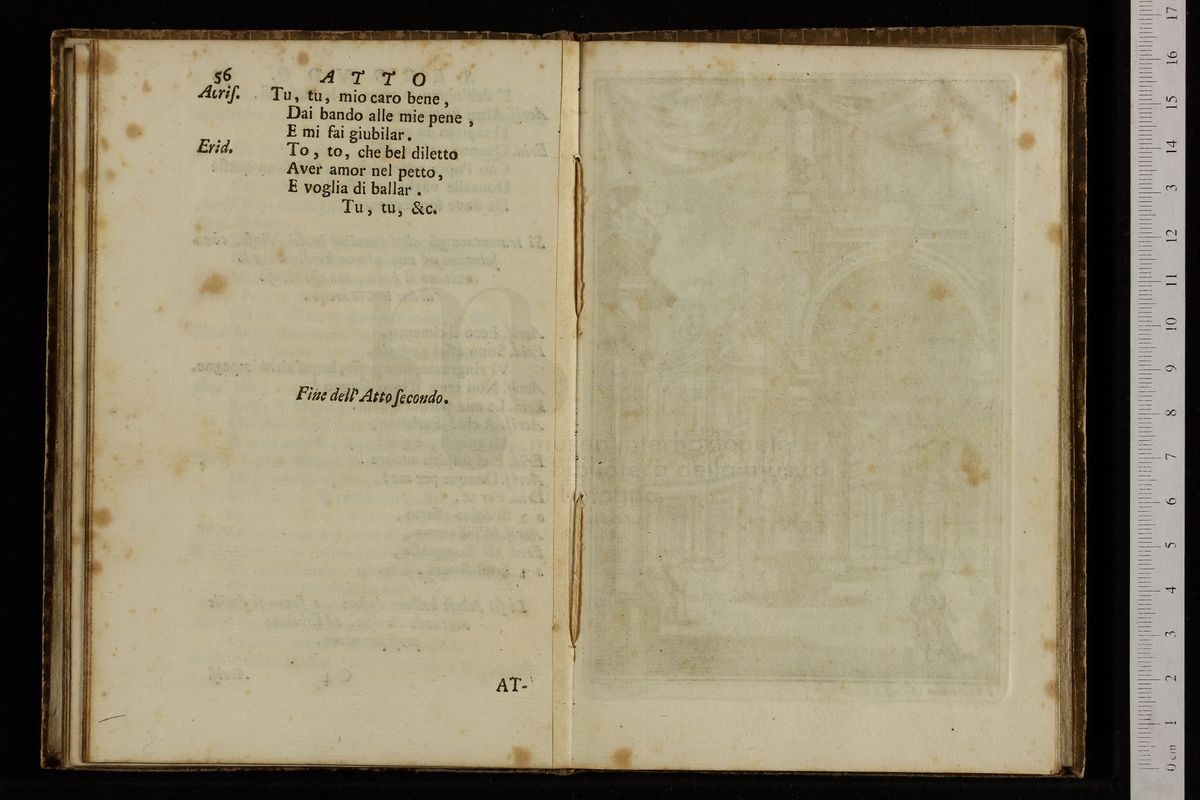 56 ATTO
Acriſ. Tu, tu, mio caro bene,
Dai bando alle mie pene,
E mi fai giubilar.
Erid. To, to, che bel diletto
Aver amor nel petto,
E voglia di ballar.
Tu, tu, &c.
Fine dell'Atto ſecondo.
AT-
museo internazionale
e biblioteca della musica
di bologna
0 cm 1 2 3 4 5 6 7 8 9 10 11 12 13 14 15 16 17